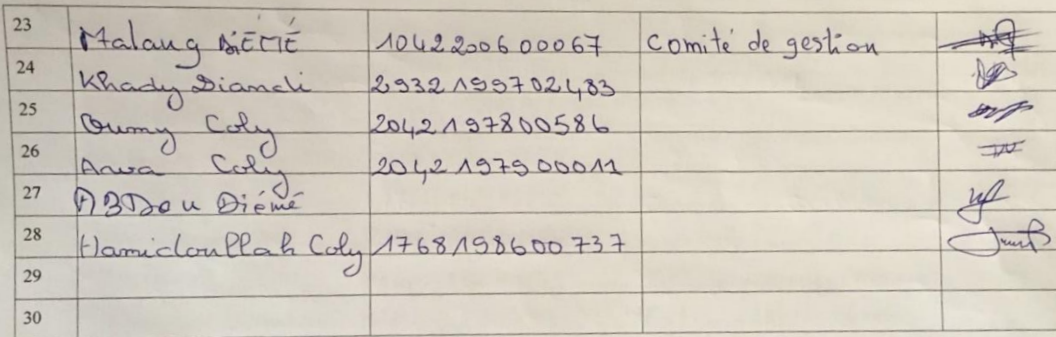 23 Malang DIÉMÉ 1042200600067 Comité de gestion
24 Khady Diandi 2932199702483
25 Oumy Coly 2042197800586
26 Awa Coly 2042197900011
27 ABDou Diémé
28 Hamidoullah Coly 1768198600737
29
30